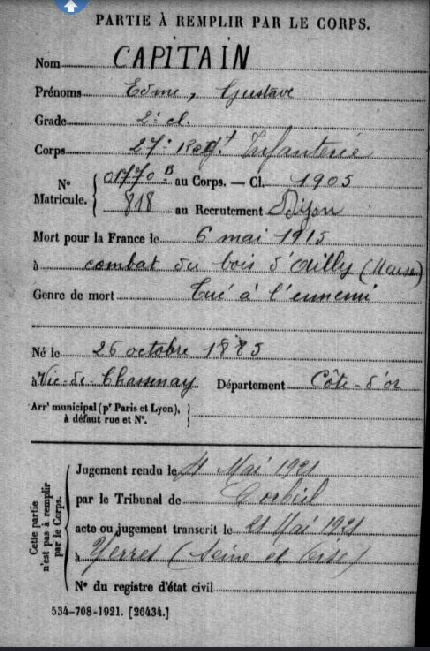 PARTIE À REMPLIR PAR LE CORPS.
Nom CAPITAIN
Prénoms Edme, Gustave
Grade 2e cl.
Corps 27e Regt Infanterie
N° Matricule. { 01770 B au Corps. — Cl. 1905
818 au Recrutement Dijon
Mort pour la France le 6 mai 1915
à combat du bois d'Ailly (Meuse)
Genre de mort Tué à l'ennemi
Né le 26 octobre 1885
à Vic-de-Chassenay Département Côte-d'or
Arrt municipal (pr Paris et Lyon), à défaut rue et N°.
Cette partie n'est pas à remplir par le Corps.
Jugement rendu le 11 Mai 1921
par le Tribunal de Corbeil
acte ou jugement transcrit le 21 Mai 1921
à Yerres (Seine et Oise)
N° du registre d'état civil
534-708-1921. [26434.]